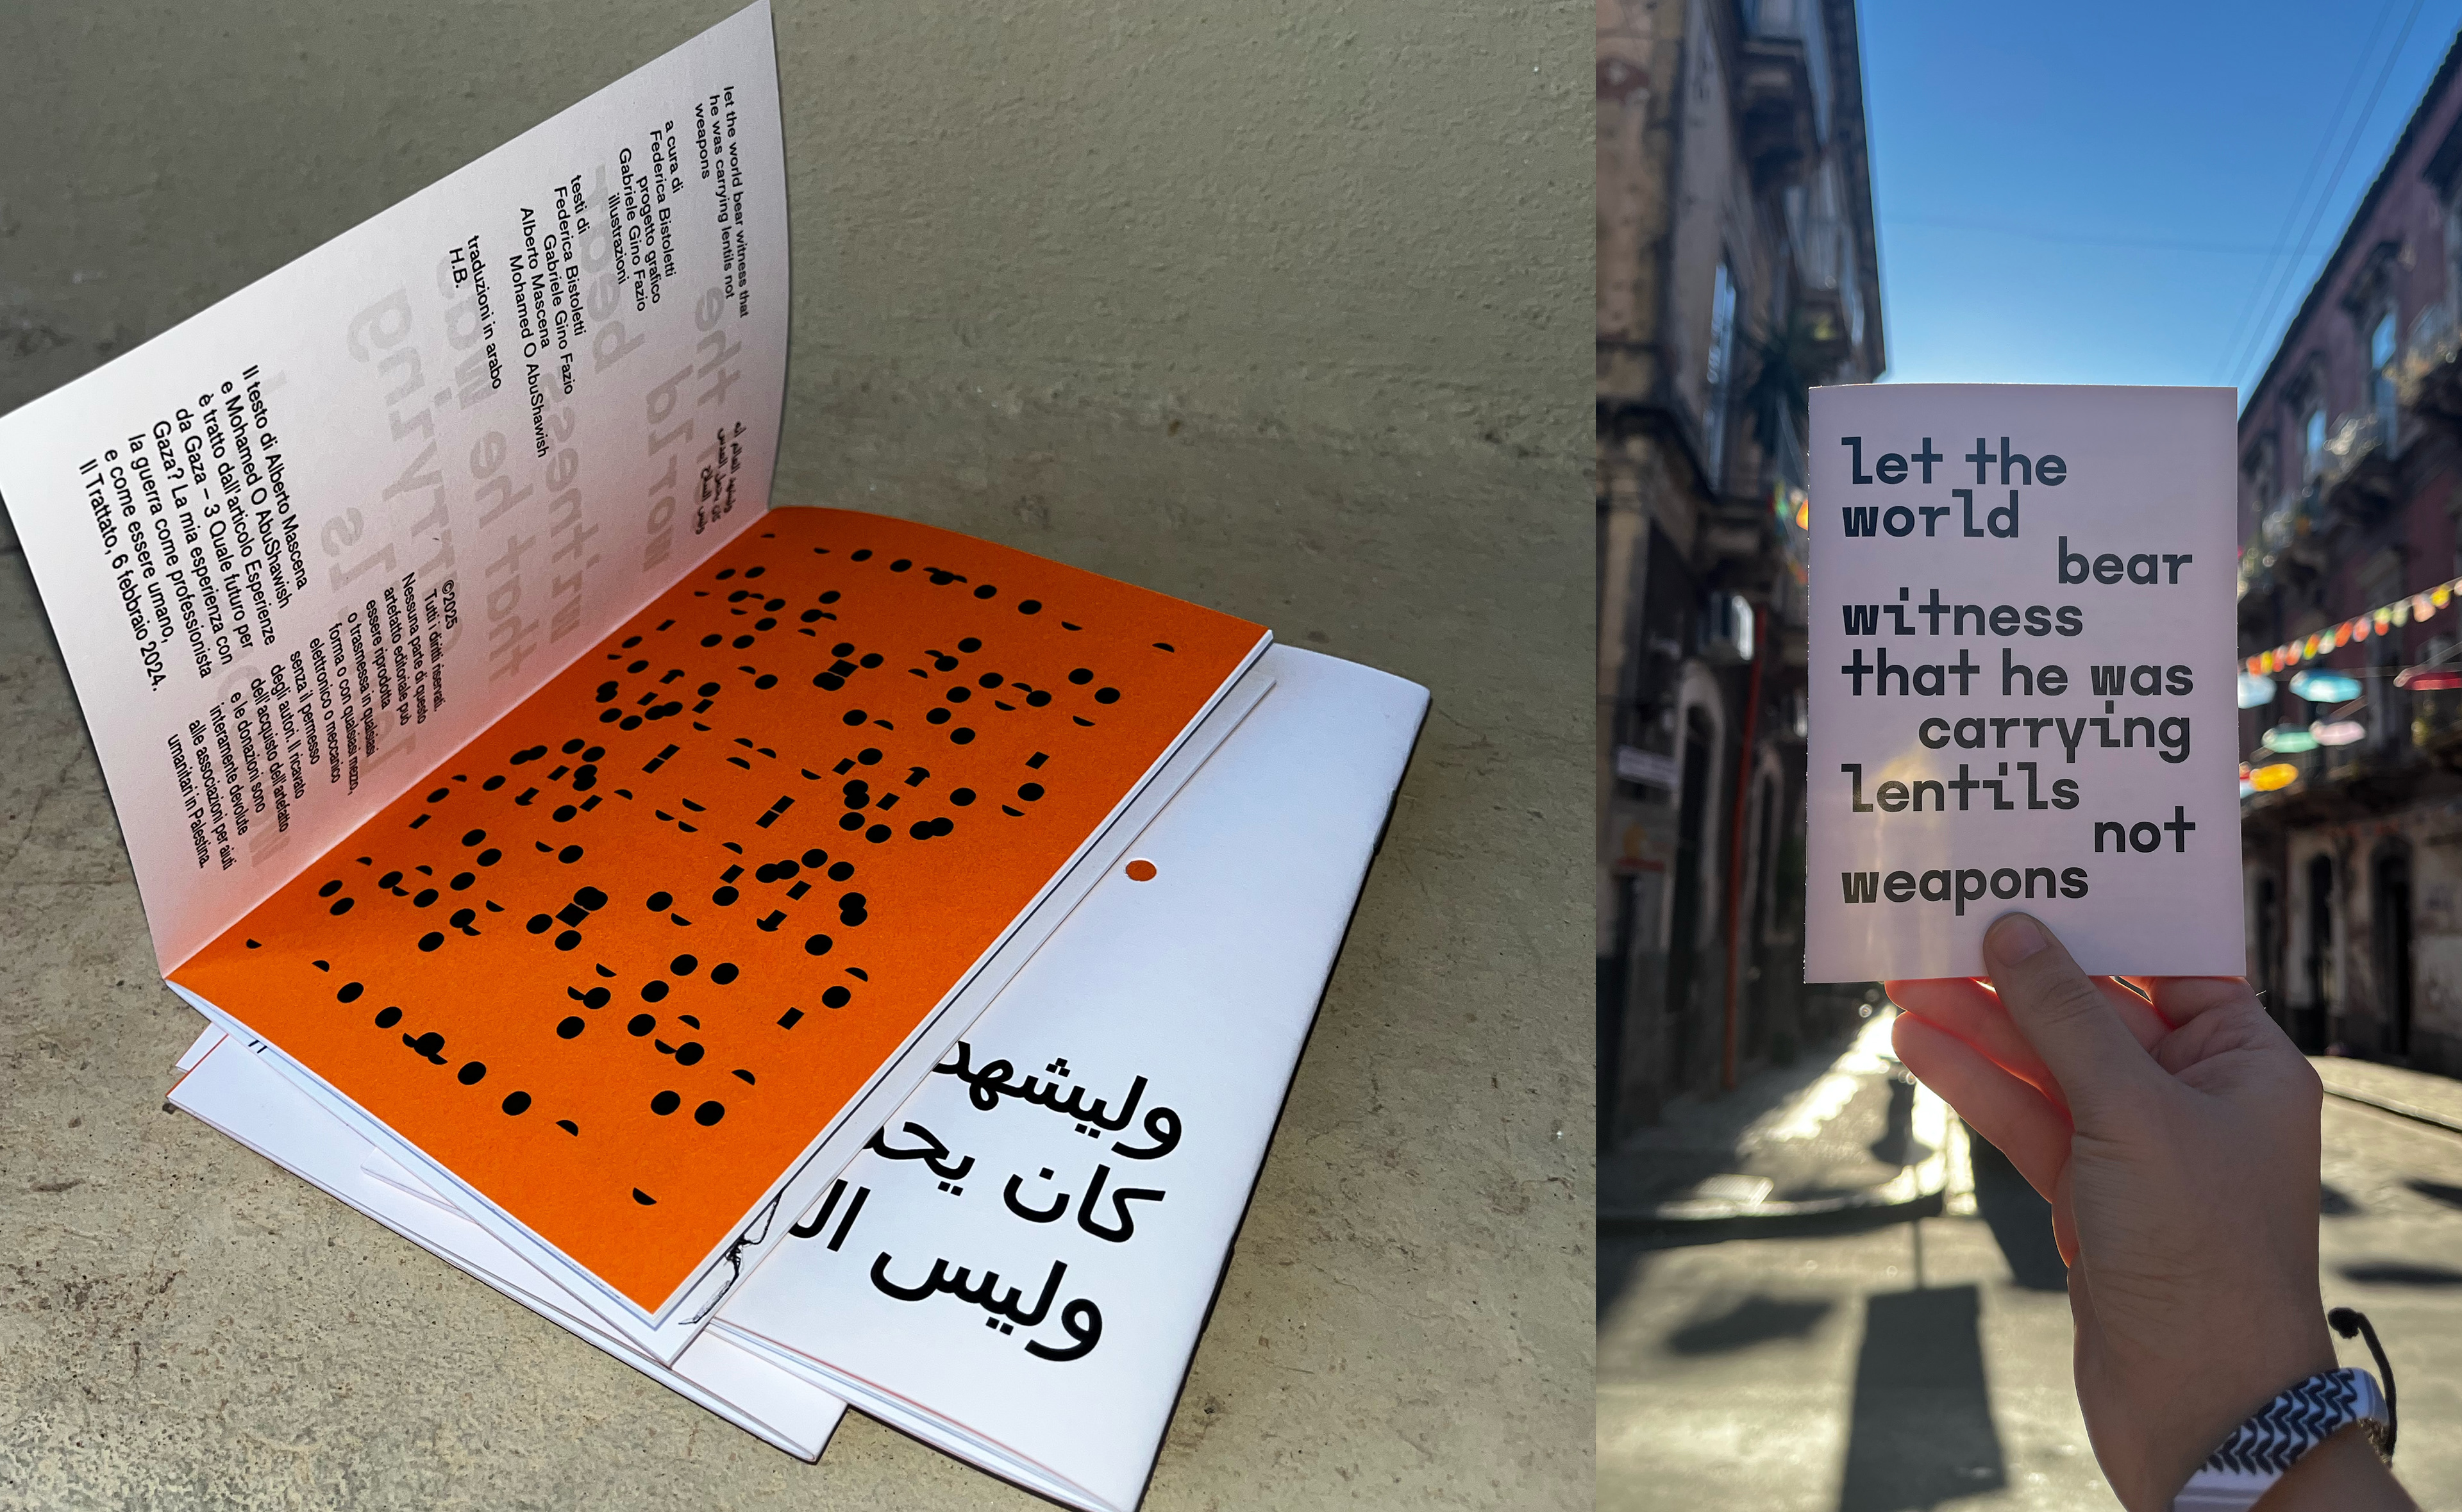 let the world bear witness that
he was carrying lentils not
weapons
a cura di
Federica Bistoletti
progetto grafico
Gabriele Gino Fazio
illustrazioni
testi di
Federica Bistoletti
Gabriele Gino Fazio
Alberto Mascena
Mohamed O AbuShawish
traduzioni in arabo
H.B.
Il testo di Alberto Mascena
e Mohamed O AbuShawish
è tratto dall'articolo Esperienze
da Gaza – 3 Quale futuro per
Gaza? La mia esperienza con
la guerra come professionista
e come essere umano,
Il Trattato, 6 febbraio 2024.
©2025
Tutti i diritti riservati.
Nessuna parte di questo
artefatto editoriale può
essere riprodotta
o trasmessa in qualsiasi
forma o con qualsiasi mezzo,
elettronico o meccanico
senza il permesso
degli autori. Il ricavato
dell'acquisto dell'artefatto
e le donazioni sono
interamente devolute
alle associazioni per aiuti
umanitari in Palestina.
وليشهد
كان يحم
وليس ال
let the
world
bear
witness
that he was
carrying
lentils
not
weapons